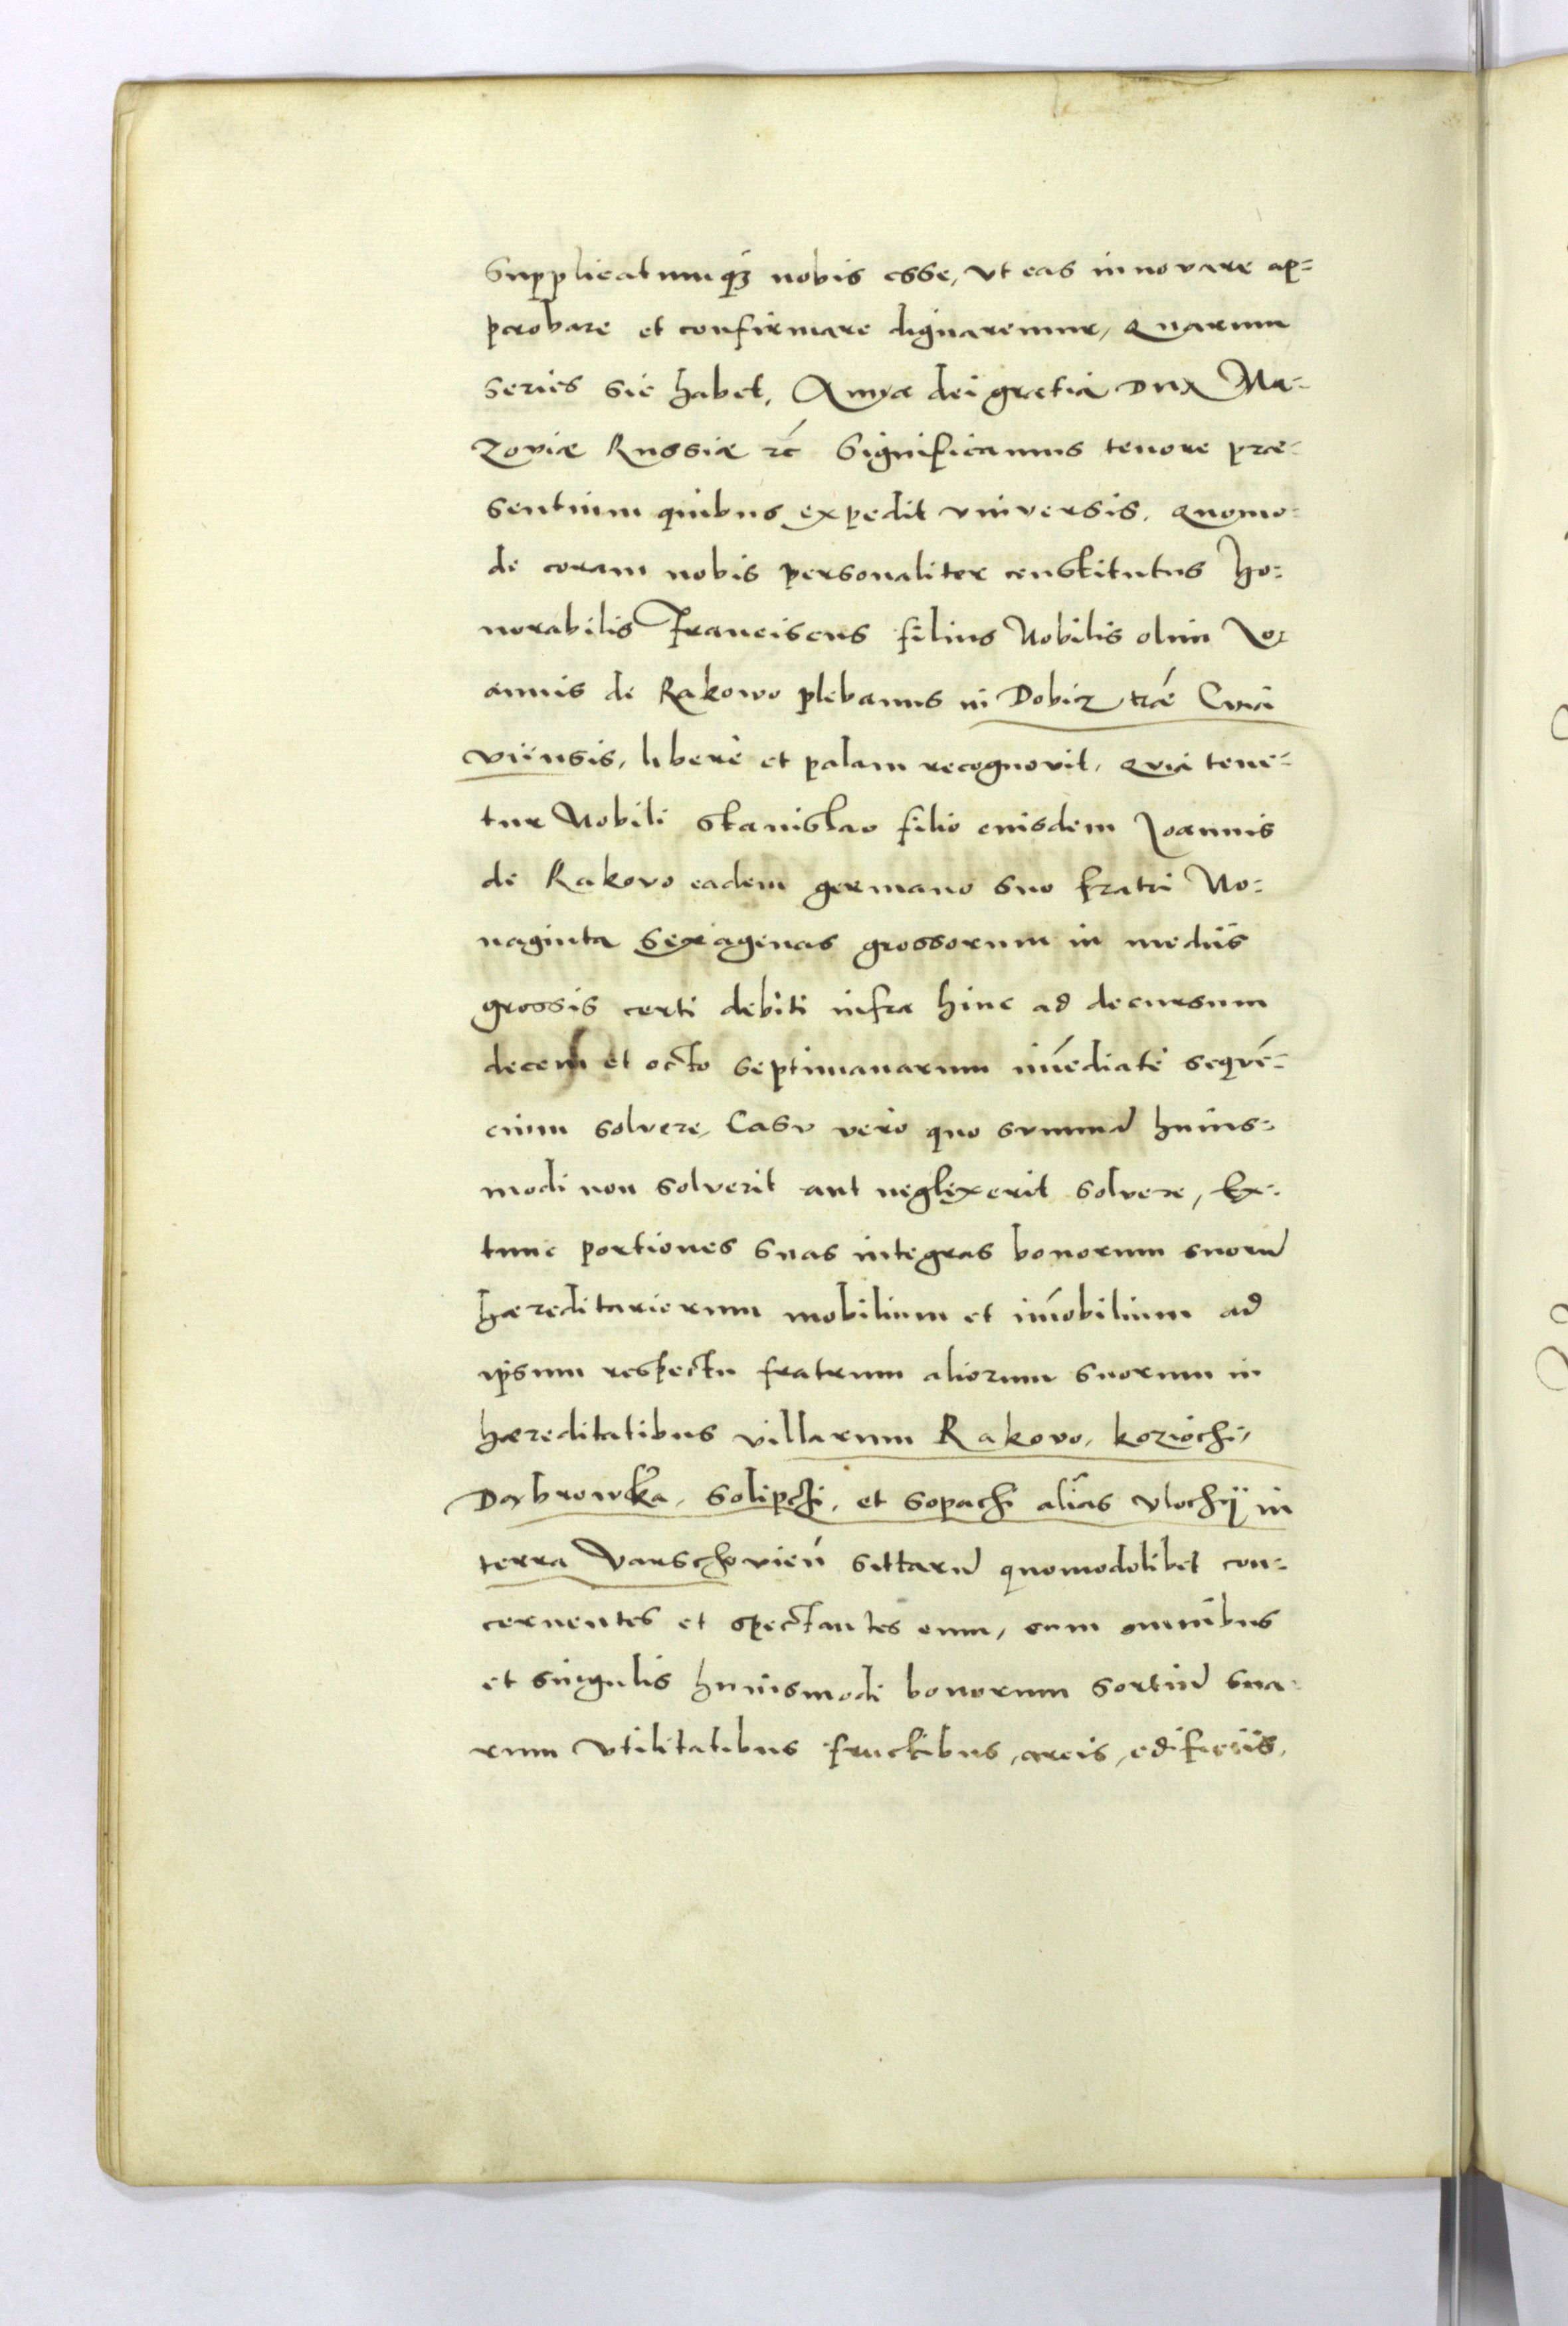 Supplicatumq3 nobis esse, vt eas innovare ap=
probare et confirmare dignaremur, Quarum
series sic habet, Anna dei gratia Dux Ma=
zoviæ Russiæ rc̃ Significamus tenore præ=
sentium quibus expedit vniversis. Quomo=
do coram nobis personaliter constitutus Ho=
norabilis Franciscus filius Nobilis olim Jo=
annis de Rakowo plebanus in Dobrz trǽ Cuia
viensis, liberè et palam recognovit, Quia tene=
tur Nobili Stanislao filio eiusdem Joannis
de Rakovo eadem germano suo fratri No=
naginta sexagenas grossorum in mediis
grossis certi debiti infra hinc ad decursum
decem et octo septimanarum im̃ediatè sequẽ=
cium solvere, Casv verò quo summã huius=
modi non solverit aut neglexerit solvere, Ex=
tunc portiones suas integras bonorum suorũ
hæreditariorum mobilium et im̃obilium ad
ipsum respectu fratrum aliorum suorum in
hæreditatibus villarum Rakovo, koziochi,
Dąbrowka, Solipchi, et Sopachi aliàs vlochÿ in
terra Varschovień sittarũ quomodolibet con=
cernentes et spectantes eum, cum omnibus
et singulis huiusmodi bonorum sortiũ sua=
rum vtilitatibus fructibus, areis, edificiis,